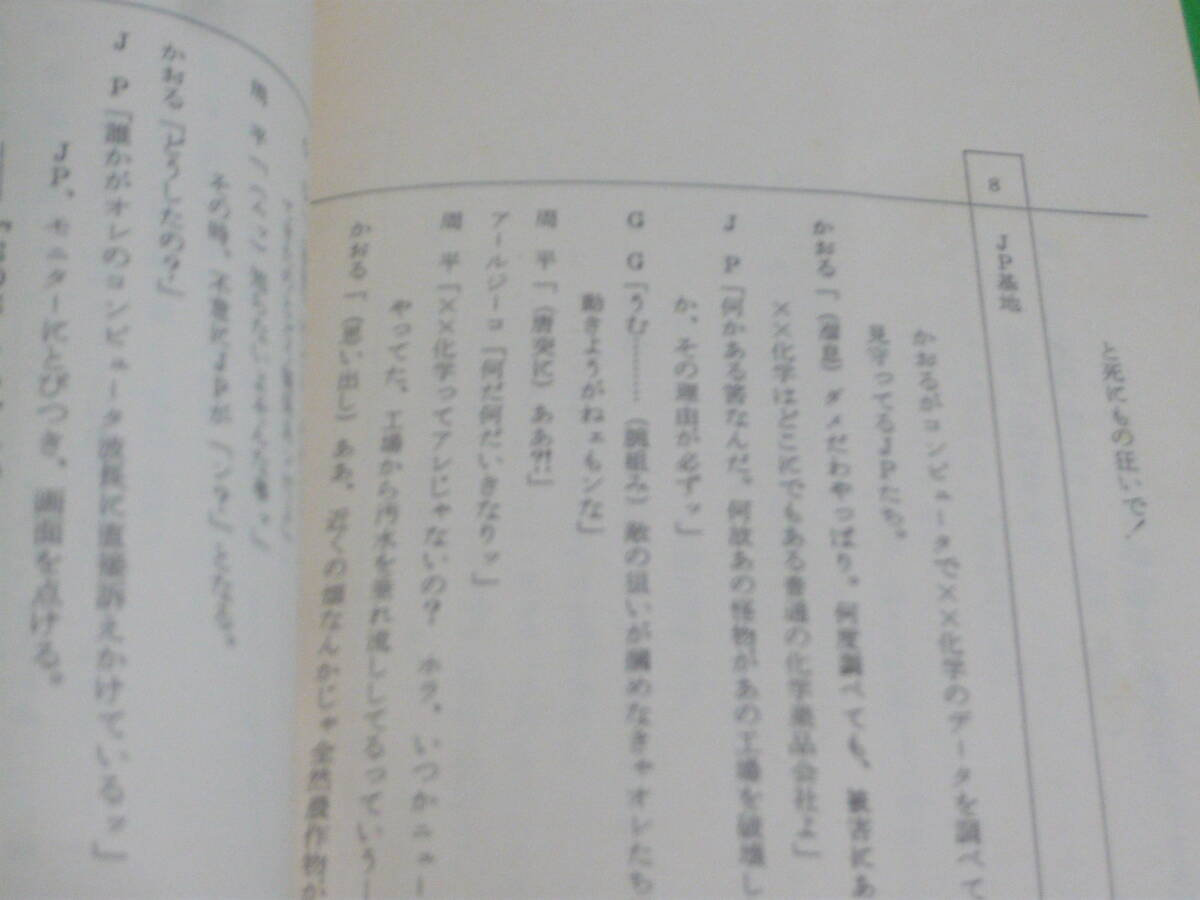 と共にもの凄い
8
JP基地
かおるがコンピュータで××化学のデータを調べて
見守ってるJPたち。
かおる「(溜息)ダメだわやっぱり。何度調べても、被害にあ
××化学はどこにでもある普通の化学薬品会社よ」
JP「何かある筈なんだ。何故あの怪物があの工場を破壊し
か、その理由が必ずッ」
GG「うむ………(腕組み)敵の狙いが掴めなきゃオレたち
動きようがねェもンな」
周平「(唐突に)ああ⁈」
アールジーコ「何だ何だいきなりッ」
周平「××化学ってアンじゃないの? ホラ、いつかニュー
やってた、工場から汚水を垂れ流ししてるっていう
かおる「(思い出し)ああ、近くの畑なんかじゃ全然農作物が
周平「
その時、不意にJPが「ハッ」となる。
かおる「どうしたの?」
JP「誰かがオレのコンピュータ波長に直接訴えかけているッ」
JP、モニターにとびつき、画面を点ける。